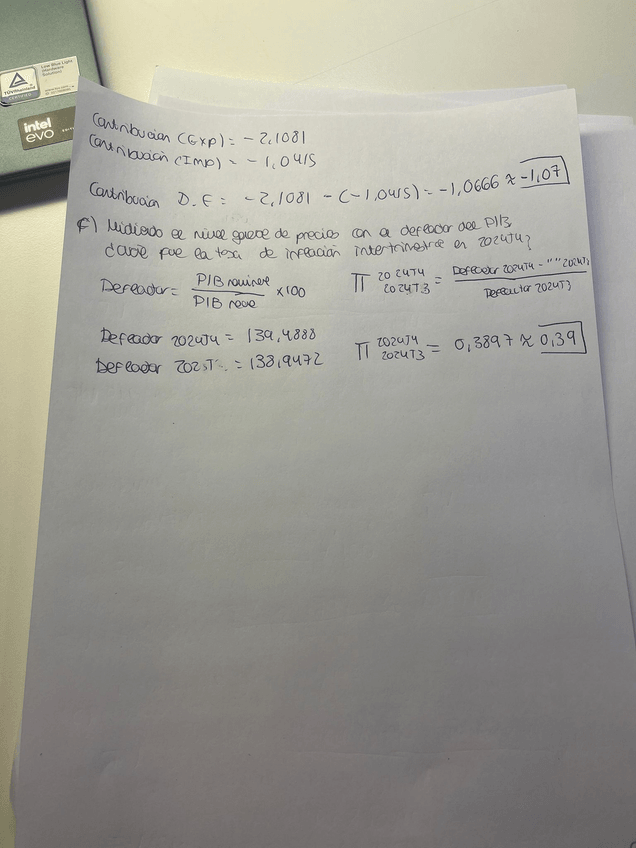 Low Blue Light
(Hardware
Solution)
TÜVRheinland
CERTIFIED
intel
evo
Contribución (Exp) = -2,1081
Contribución (Imp) = -1,0415
Contribución D.E = -2,1081 - (-1,0415) = -1,0666 ≈ -1,07
F) Midiendo el nivel general de precios con el deflactor del PIB,
¿cuál fue la tasa de inflación intertrimestral en 2024T4?
Deflactor = PIB nominal / PIB real × 100
π 2024T4 2024T3 = Deflactor 2024T4 - "" 2024T3 / Deflactor 2024T3
Deflactor 2024T4 = 139,4888
Deflactor = 138,9472
π 2024T4 2024T3 = 0,3897 ≈ 0,39